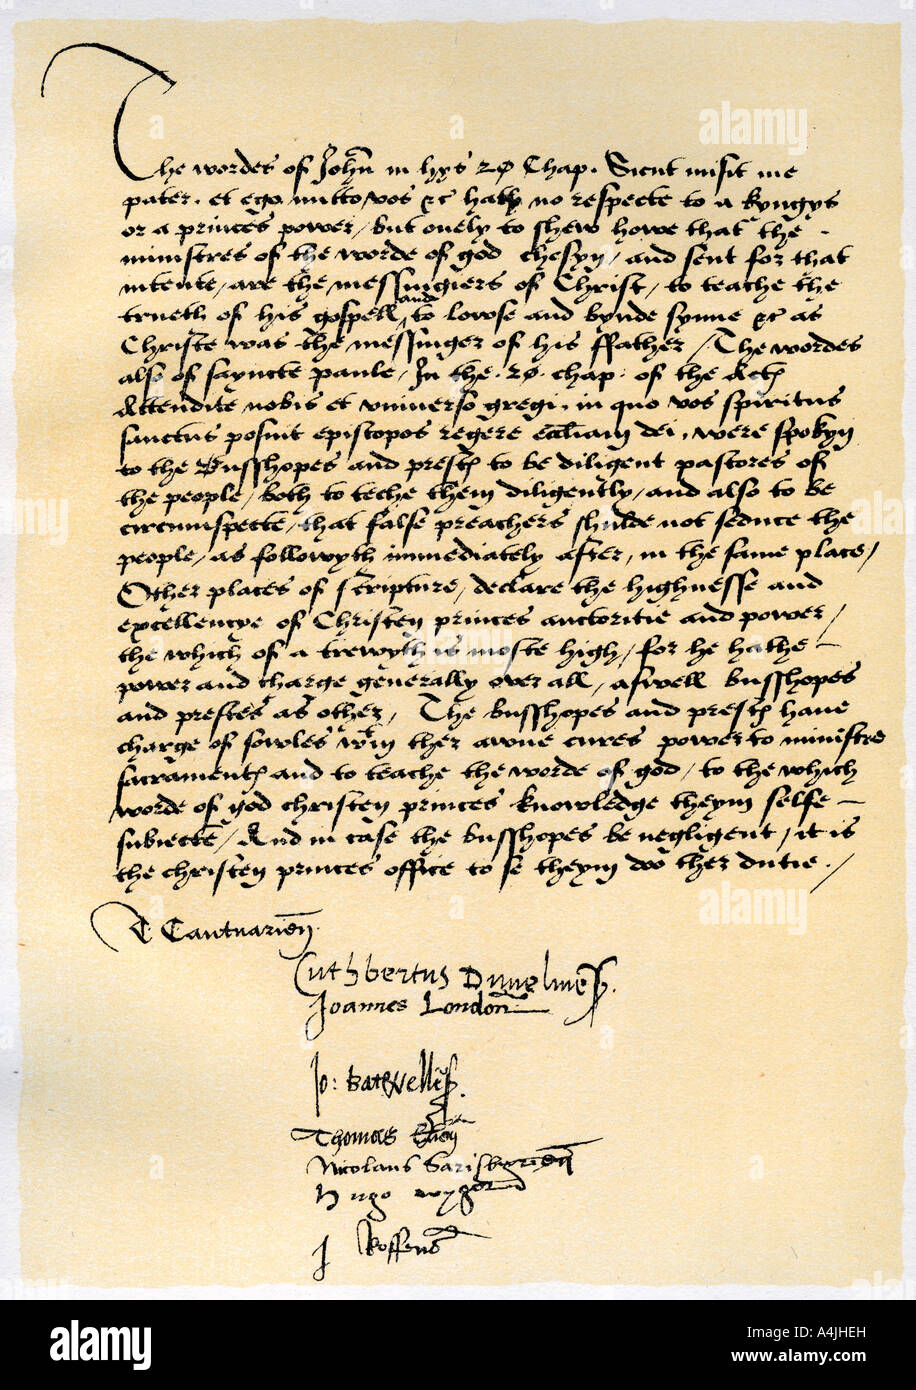 The wordes of John in hys 20 Chap. Sicut misit me
pater. et ego mitto vos &c hath no respecte to a kyngys
or a princes power, but onely to shew howe that the
ministres of the worde of god chesyn, and sent for that
intente, are the messingiers of Christ, to teache the
trueth of his gospell, and to lowse and bynde synne &c as
Christe was the messinger of his ffather / The wordes
also of sayncte paule, In the .20. chap: of the Acts
Attendite vobis et universo gregi. in quo vos spiritus
sanctus posuit episcopos regere eccliam dei, were spokyn
to the Busshopes and prests to be diligent pastores of
the people, both to teche them diligently, and also to be
circumspecte, that false preachers shulde not seduce the
people, as followyth immediately after, in the same place,
Other places of scripture, declare the highnesse and
excellencye of Christen princes auctoritie and power,
the which of a trewyth is moste high, for he hathe
power and charge generally over all, aswell busshopes
and prestes as other, The busshopes and prests have
charge of sowles wtin ther awne cures power to ministre
sacraments and to teache the worde of god, to the which
worde of god christen princes knowledge theym selfe
subiecte, And in case the busshopes be negligent, it is
the christen princes office to se theym doo ther dutie. /
T. Cantuarien
Cuthbertus Dunelmens.
Joannes London
Jo: batwellis.
Thomas Elien
Nicolaus Sarisburien
Hugo wygorn
J Roffens
alamy
Image ID: A4JHEH
www.alamy.com